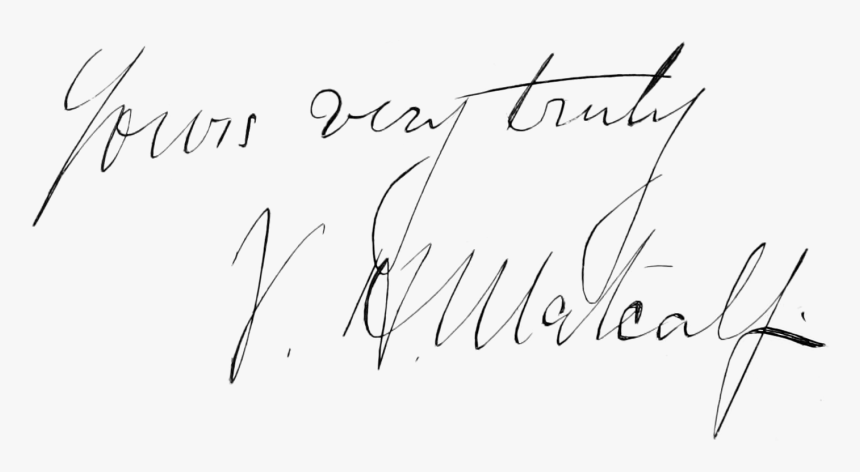 Yours very truly
V. H. Metcalf.